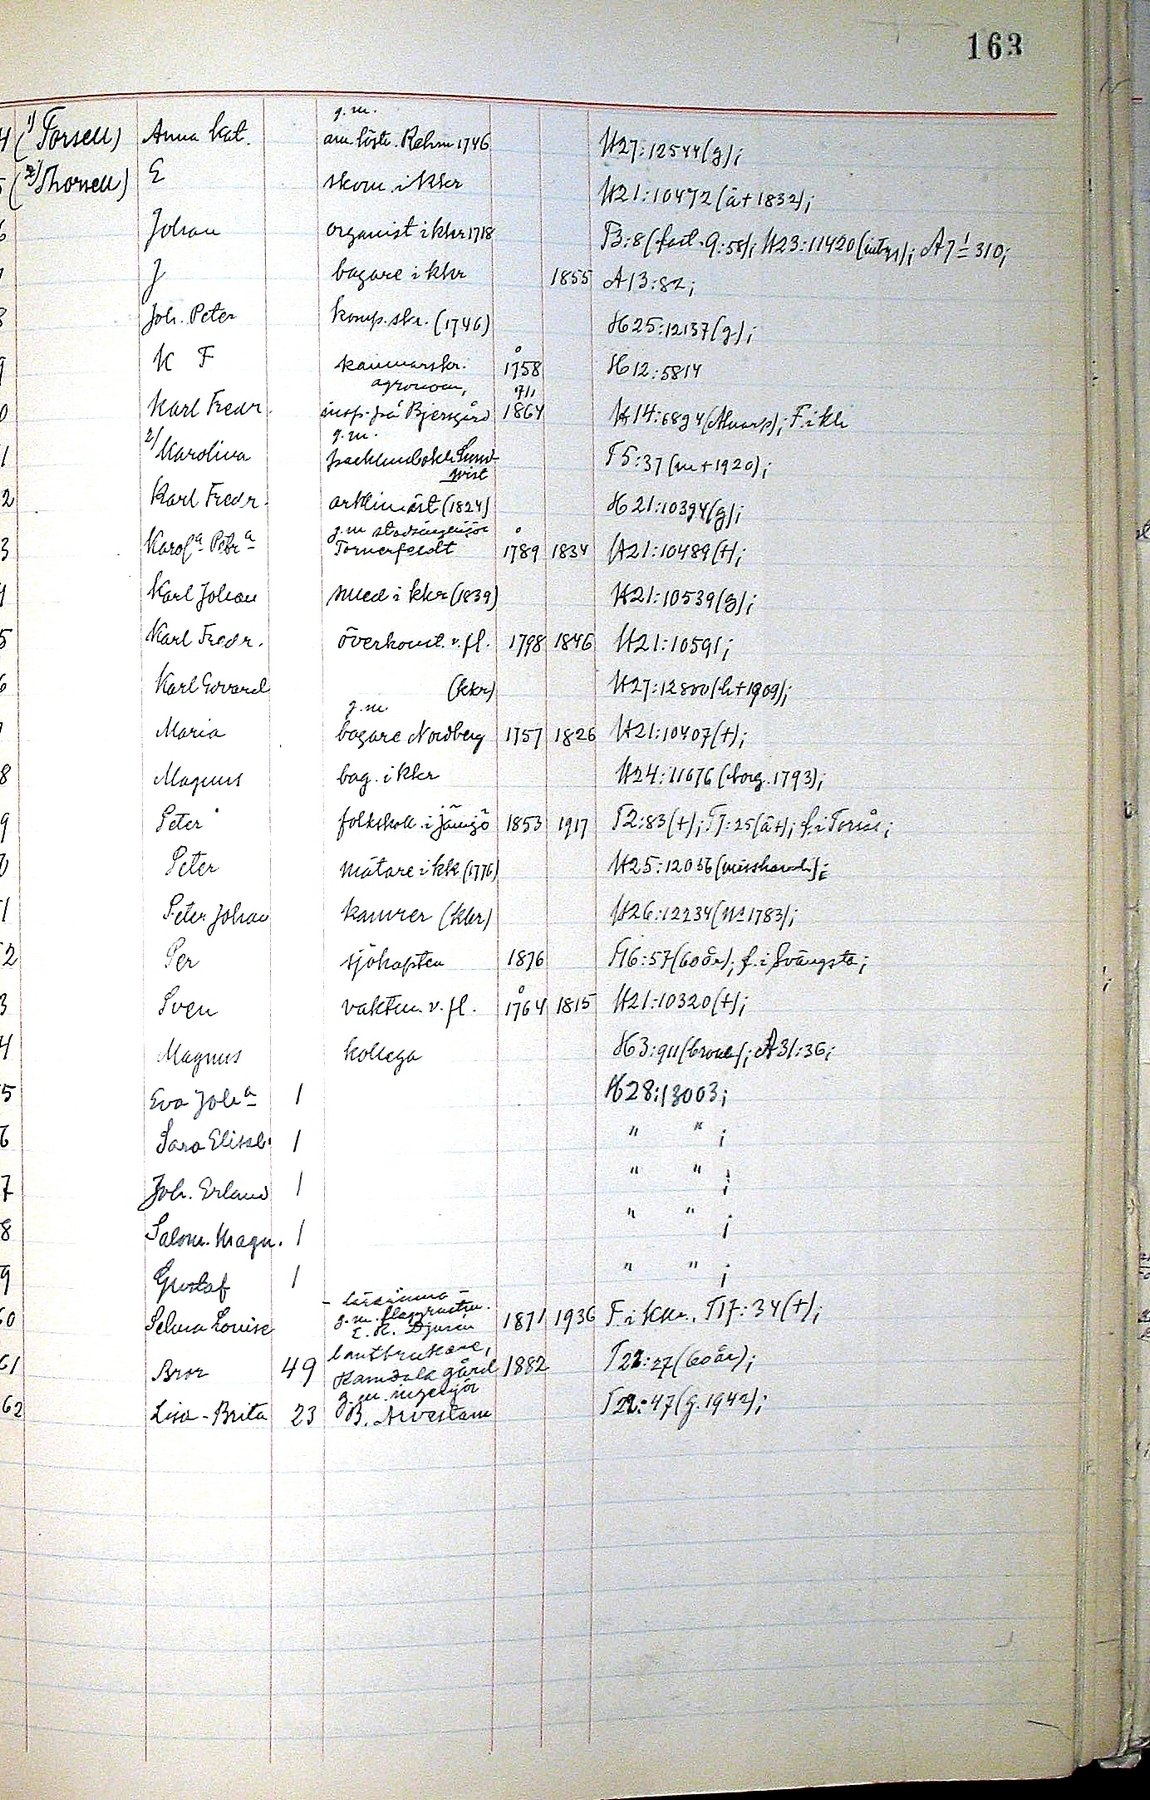 163
4 (1) Forsell) Anna Kat. g.m. 1746 H27:12544(g);
5 (2) Thorsell) E skom. i kkr H21:10472 (ä+1832);
6 Johan organist i kkr 1718 B:8 H23:11420 A7 1 = 310;
J bagare i kkr 1855 A13:82;
8 Joh. Peter komp.skr. (1746) H25:12137(g);
9 K F kammarskr. 1758 H12:5814
0 Karl Fredr. agronom, insp. på Bjersgård 9/11 1864 F. i kkr
1 2/ Karolina g.m. T5:37 (m+1920);
2 Karl Fredr. (1824) H21:10394(g);
3 Karol a Petr a g.m. stadsingenjör Tornerfeldt 1789 1834 H21:10489(+);
4 Karl Johan smed i kkr (1839) H21:10539(g);
5 Karl Fredr. överkonst. v. fl. 1798 1846 H21:10591;
6 Karl Edvard (kkr) H27:12800(h+1909);
Maria g.m. bagare Nordberg 1757 1826 H21:10407(+);
8 Magnus bag. i kkr H24:11676 (borg. 1793);
9 Peter folkskoll. i Jämjö 1853 1917 T2:83(+); T7:25(ä+); f. i Torsås;
0 Peter mätare i kkr (1776) H25:12036
1 Peter Johan kamrer (kkr) H26:12234
2 Per sjökapten 1876 57(60 år); f. i Svängsta;
3 Sven vaktm. v. fl. 1764 1815 H21:10320(+);
4 Magnus kollega H3:911 A31:36;
5 Eva Joh a 1 H28:13003;
6 Sara Elisab. 1 " " ;
7 Joh. Erland 1 " " ;
8 Salom. Magn. 1 " " ;
9 Gustaf 1 " " ;
60 Selma Louise - lärarinna - g.m. E. H. Djurén 1871 1936 F. i Kkr. T17:34(+);
61 Bror 49 lantbrukare, Ramdala gård 1882 T22:27(60 år);
62 Lisa-Brita 23 g.m. ingenjör B. Arvestam T22:47(g. 1942);